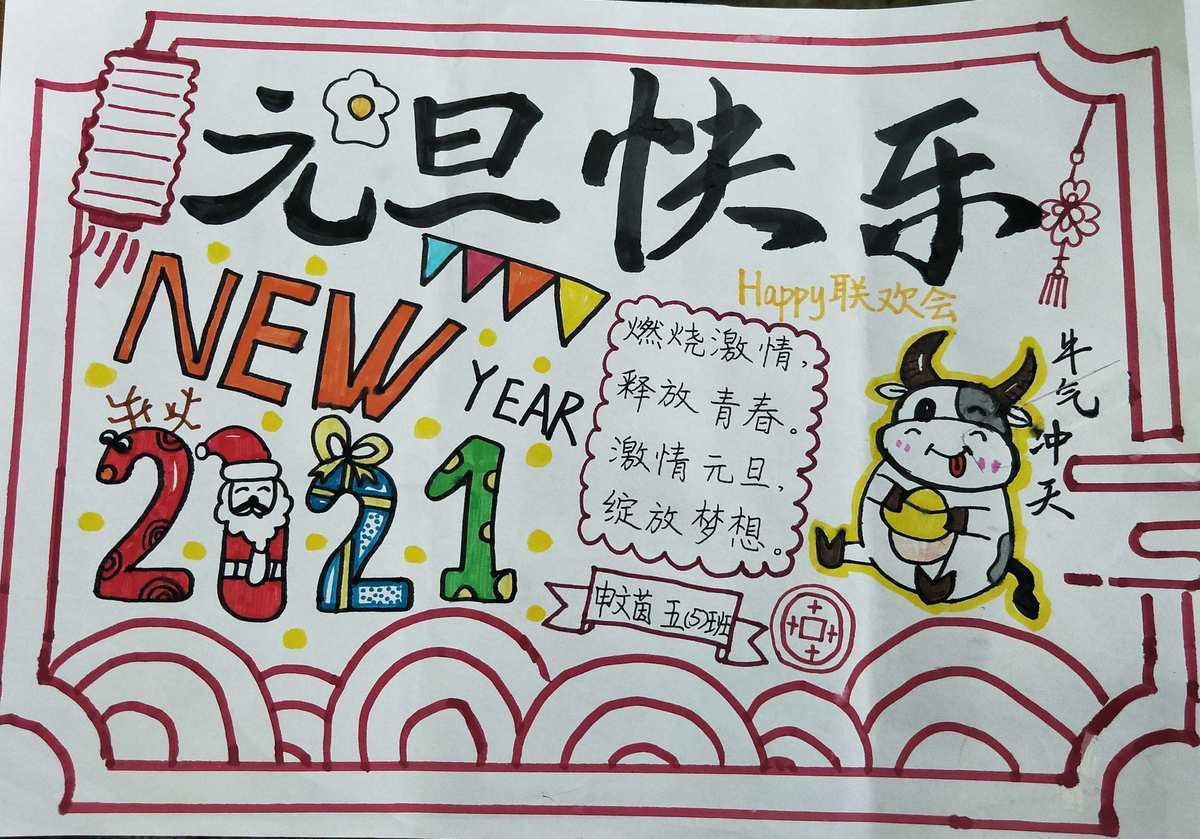 元旦快乐
NEW
YEAR
2021
Happy联欢会
燃烧激情,
释放青春。
激情元旦,
绽放梦想。
牛气冲天
申文茵 五(5)班